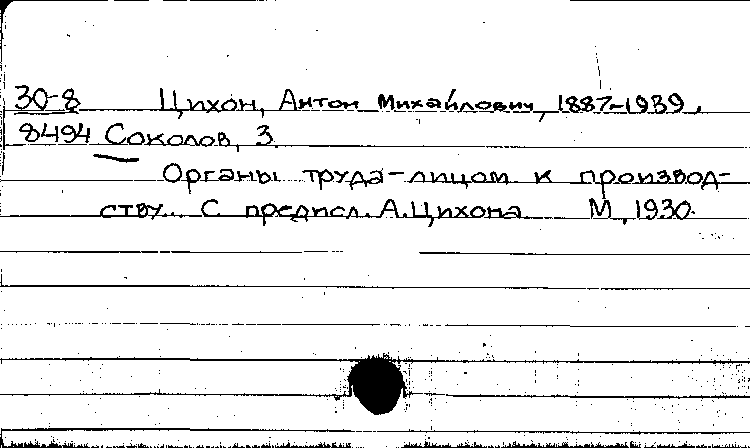 30-8 Цихон, Антон Михайлович, 1887-1939.
8494 Соколов, З.
Органы труда-лицом к производ-
ству... С предисл. А.Цихона М., 1930.